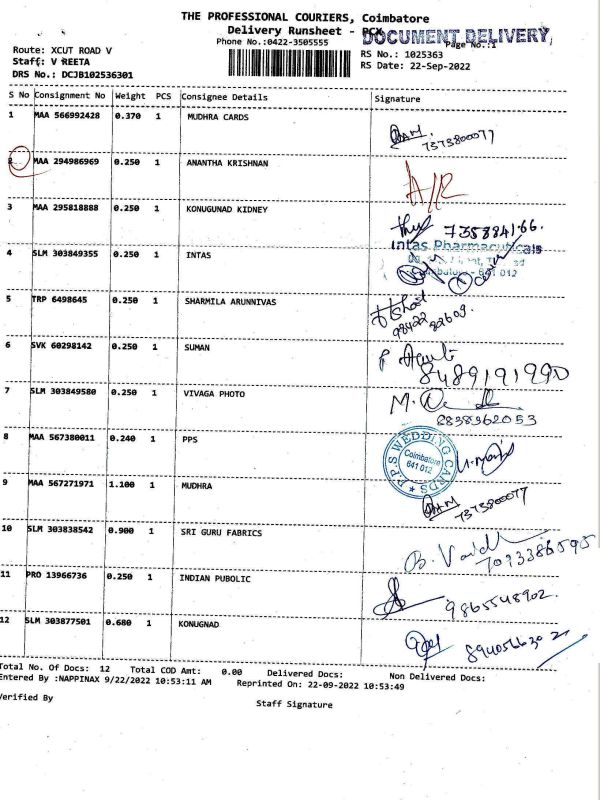 THE PROFESSIONAL COURIERS, Coimbatore
Delivery Runsheet - PCX
DOCUMENT DELIVERY
Phone No.:0422-3505555
Page No.:1
Route: XCUT ROAD V
RS No.: 1025363
Staff: V REETA
RS Date: 22-Sep-2022
DRS No.: DCJB102536301
S No Consignment No Weight PCS Consignee Details Signature
1 MAA 566992428 0.370 1 MUDHRA CARDS
7373800077
2 MAA 294986969 0.250 1 ANANTHA KRISHNAN A/R
3 MAA 295818888 0.250 1 KONUGUNAD KIDNEY
Intas Pharmaceuticals
4 SLM 303849355 0.250 1 INTAS
Coimbatore - 641 012
5 TRP 6498645 0.250 1 SHARMILA ARUNNIVAS
98422 22609.
6 SVK 60298142 0.250 1 SUMAN
8489191990
7 SLM 303849580 0.250 1 VIVAGA PHOTO
8838362053
8 MAA 567380011 0.240 1 PPS
PPS WEDDING CARDS
Coimbatore
641 012
9 MAA 567271971 1.100 1 MUDHRA
7373800077
10 SLM 303838542 0.900 1 SRI GURU FABRICS
7093386595
11 PRO 13966736 0.250 1 INDIAN PUBOLIC
9865548902.
12 SLM 303877501 0.680 1 KONUGNAD
8940566302
Total No. Of Docs: 12 Total COD Amt: 0.00 Delivered Docs: Non Delivered Docs:
Entered By :NAPPINAX 9/22/2022 10:53:11 AM Reprinted On: 22-09-2022 10:53:49
Verified By
Staff Signature